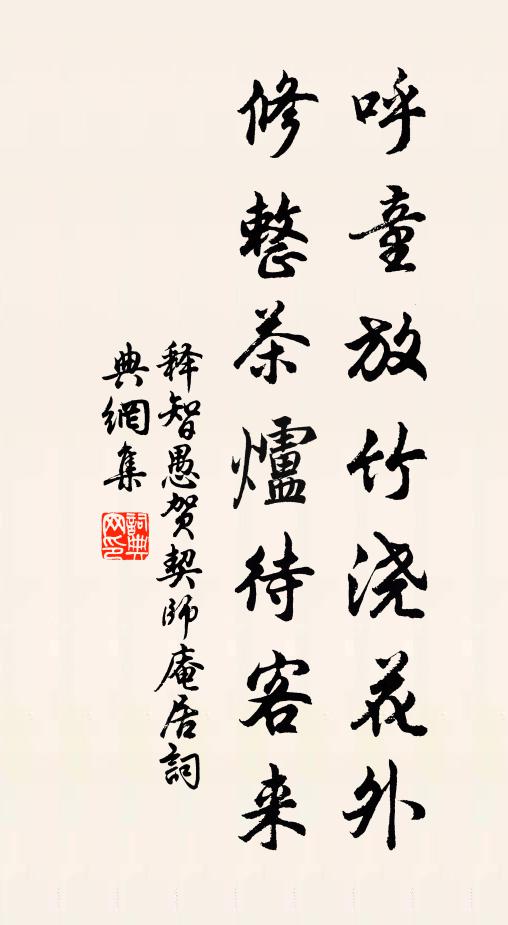 呼童放竹浇花外
修整茶爐待客来
释智愚贺契師庵居詞
典網集
詞典网印